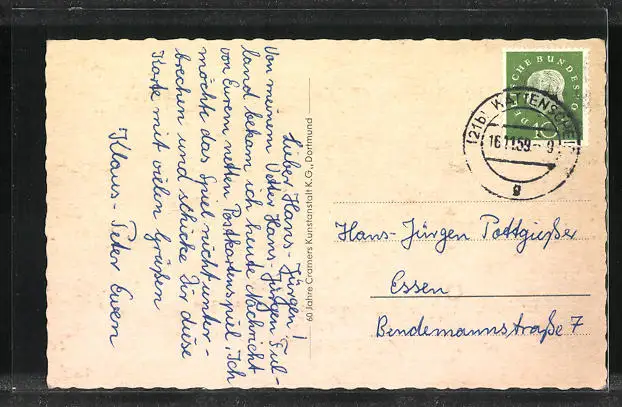 Lieber Hans-Jürgen!
Von meinem Vetter Hans-Jürgen Ful-
land bekam ich heute Nachricht
von Eurem netten Postkartenspiel. Ich
möchte das Spiel nicht unter-
brechen und schicke Dir diese
Karte mit vielen Grüßen
Klaus-Peter Ewen
60 Jahre Cramers Kunstanstalt K.G., Dortmund
(21b) KATTENSCHE
16.11.59-9
g
Hans-Jürgen Pottgießer
Essen
Bendemannstraße 7